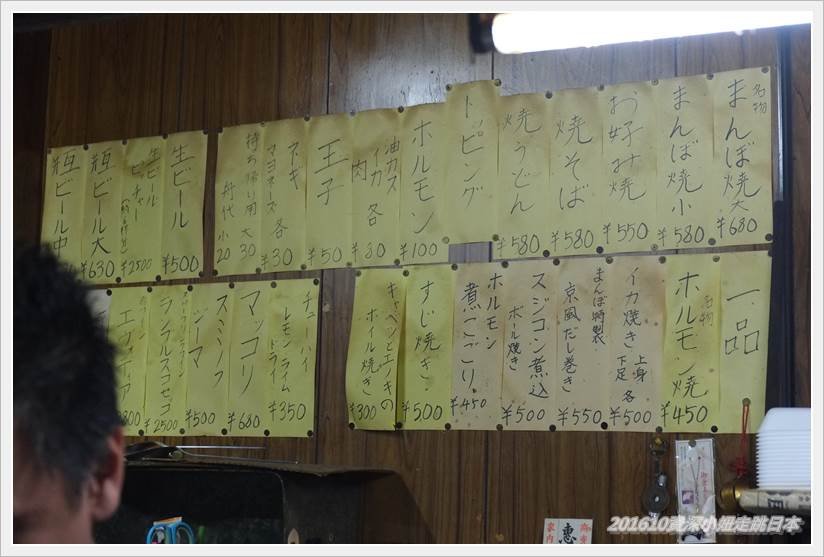 名物
まんぼ焼大
¥680
まんぼ焼小
¥580
お好み焼
¥550
焼そば
¥580
焼うどん
¥580
トッピング
ホルモン
¥100
油カス
イカ 各
肉
¥80
玉子
¥50
ネギ
マヨネーズ 各
¥30
持ち帰り用 大30
舟代 小20
生ビール
¥500
生ビール
ピッチャー
¥2500
瓶ビール大
¥630
瓶ビール中
一品
名物
ホルモン焼
¥450
イカ焼き 上身
下足 各
¥500
まんぼ特製
京風だし巻き
¥550
スジコン煮込
ボール焼き
¥500
ホルモン
煮こごり
¥450
すじ焼き
¥500
キャベツとエノキの
ホイル焼き
¥300
チューハイ
レモン ライム
ドライ
¥350
マッコリ
¥680
スミノフ
¥500
ランブルスコ
¥2500
201610資深小妞走跳日本